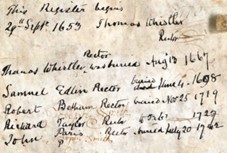 This Register begins
29th Septr. 1653 Thomas Whistler
Rector
Rector
Thomas Whistler was buried Aug 13 1667
Samuel Edwin Rector buried June 4 1698
Robert Betham Rector buried Nov 25 1719
Richard Taylor Rector 1729
John Paris Rector buried July 20 1762